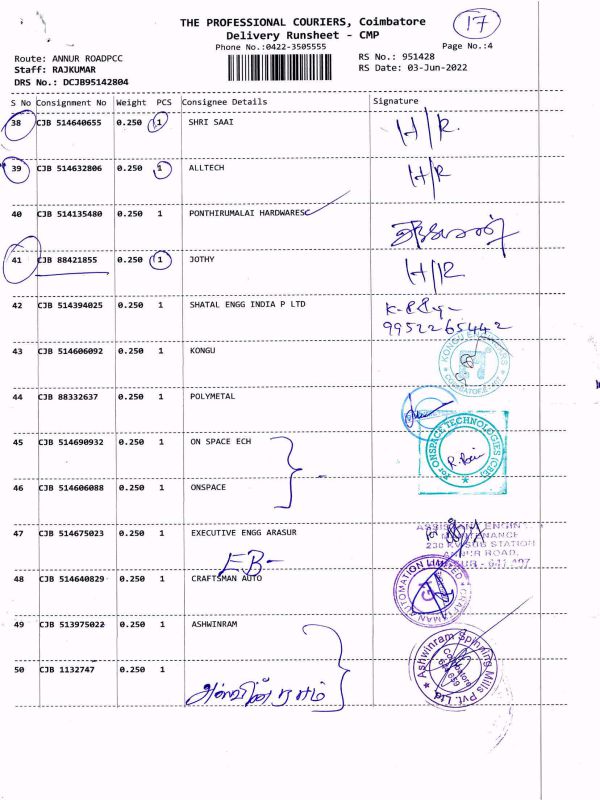 THE PROFESSIONAL COURIERS, Coimbatore
17
Delivery Runsheet - CMP
Phone No.:0422-3505555
Page No.:4
Route: ANNUR ROADPCC
RS No.: 951428
Staff: RAJKUMAR
RS Date: 03-Jun-2022
DRS No.: DCJB95142804
S No Consignment No Weight PCS Consignee Details Signature
38 CJB 514640655 0.250 1 SHRI SAAI H/R.
39 CJB 514632806 0.250 1 ALLTECH H/R
40 CJB 514135480 0.250 1 PONTHIRUMALAI HARDWARESC
41 CJB 88421855 0.250 1 JOTHY H/R
42 CJB 514394025 0.250 1 SHATAL ENGG INDIA P LTD
9952265442
43 CJB 514606092 0.250 1 KONGU
44 CJB 88332637 0.250 1 POLYMETAL
45 CJB 514690932 0.250 1 ON SPACE ECH
for ONSPACE TECHNOLOGIES (CBE)
46 CJB 514606088 0.250 1 ONSPACE
47 CJB 514675023 0.250 1 EXECUTIVE ENGG ARASUR
MAINTENANCE
230 KV SUB STATION
ANNUR ROAD,
641 407
EB-
48 CJB 514640829 0.250 1 CRAFTSMAN AUTO
CRAFTSMAN AUTOMATION LIMITED
49 CJB 513975022 0.250 1 ASHWINRAM
Ashwinram Spinning Mills Pvt. Ltd
Coimbatore
50 CJB 1132747 0.250 1
அஸ்வின்ராம்